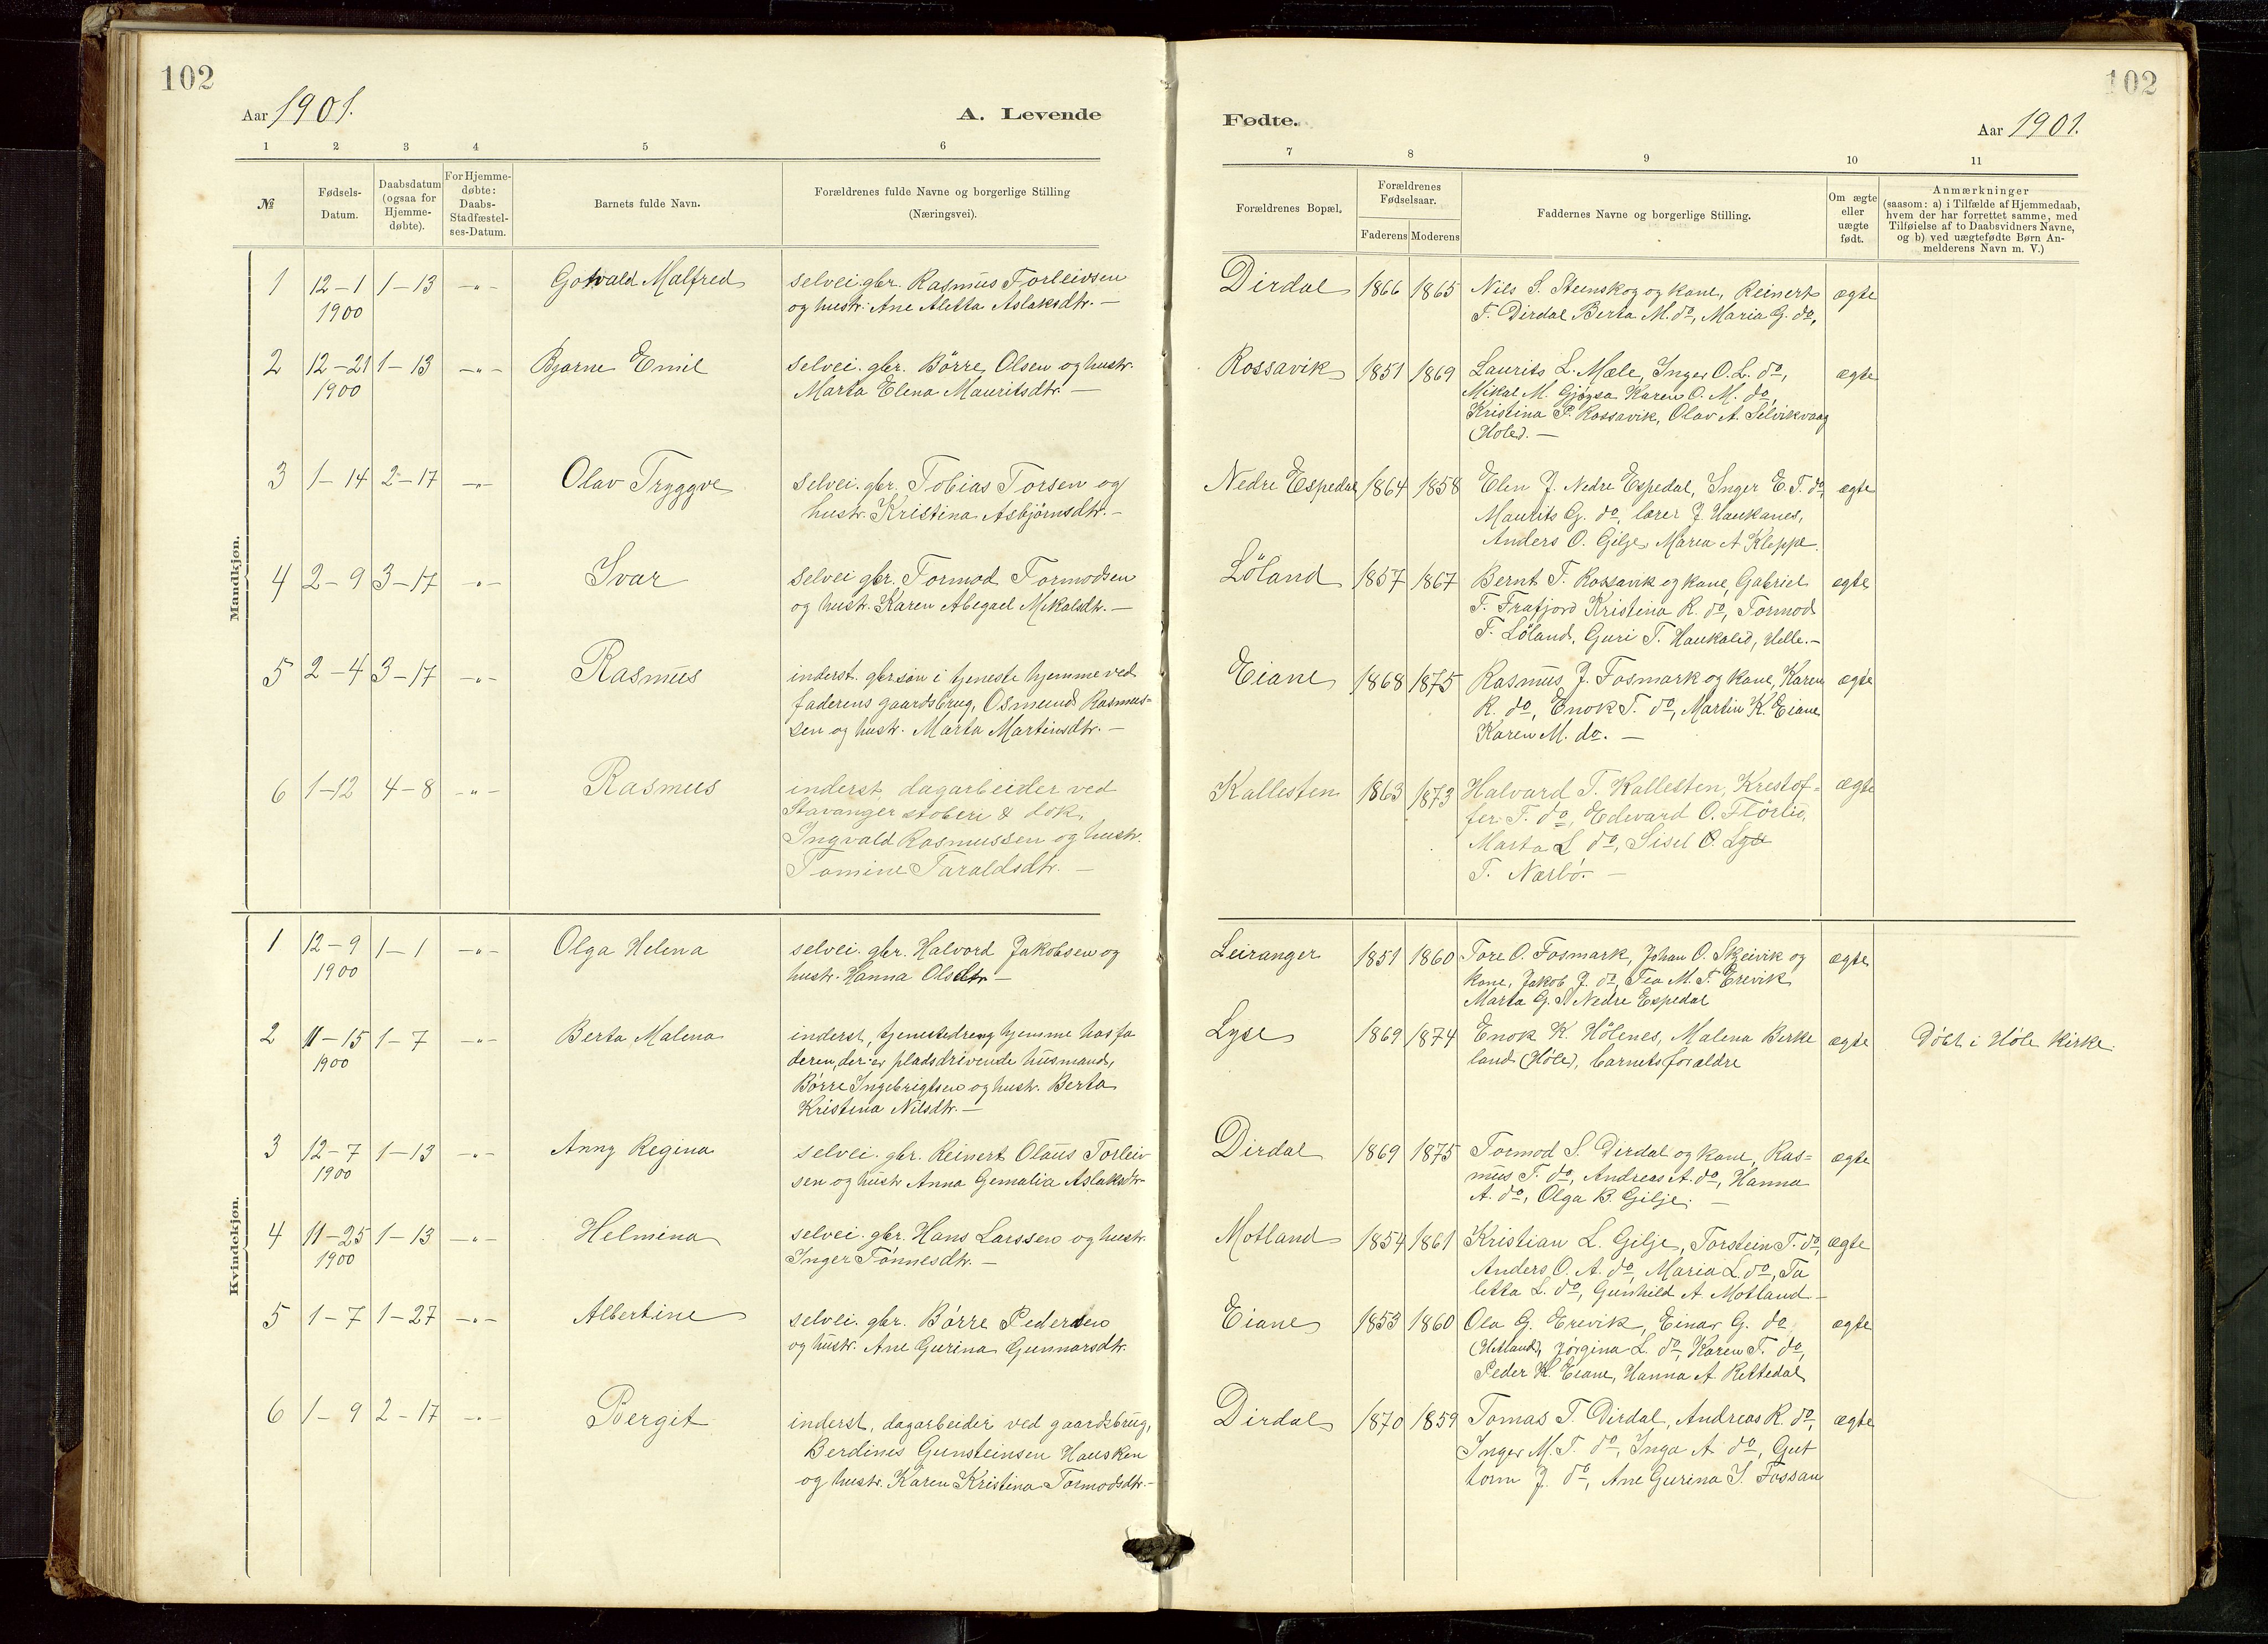 102
102
Aar 1901.
A. Levende
Fødte.
Aar 1901.
1 2 3 4 5 6
7 8 9 10 11
№
Fødsels-
Datum.
Daabsdatum
(ogsaa for
Hjemme-
døbte).
For Hjemme-
døbte:
Daabs-
Stadfæstel-
ses-Datum.
Barnets fulde Navn.
Forældrenes fulde Navne og borgerlige Stilling
(Næringsvei).
Forældrenes Bopæl.
Forældrenes
Fødselsaar.
Faderens Moderens
Faddernes Navne og borgerlige Stilling.
Om ægte
eller
uægte
født.
Anmærkninger
(saasom: a) i Tilfælde af Hjemmedaab,
hvem der har forrettet samme, med
Tilføielse af to Daabsvidners Navne,
og b) ved uægtefødte Børn An-
melderens Navn m. V.)
Mandkjøn.
1 12-1 1-13 -"- Gotvald Malfred
1900
selvei. gbr. Rasmus Torleivsen
og hustr. Ane Aletta Aslaksdtr. —
Dirdal 1866 1865
Nils S. Steenskog og kone, Reinert
T. Dirdal Berta M. do, Maria G. do,
ægte
2 12-21 1-13 -"- Bjarne Emil
1900
selvei. gbr. Börre Olsen og hustr.
Marta Elena Mauritsdtr. —
Rossavik 1851 1869
Laurits L. Mæle, Inger O. L. do,
Mikal M. Gjøysa Karen O. M. do,
Kristina P. Rossavik, Olav A. Selvikvaag
(Hole). —
ægte
3 1-14 2-17 -"- Olav Tryggve
selvei. gbr. Tobias Torsen og
hustr. Kristina Asbjørnsdtr. —
Nedre Espedal 1864 1858
Elen J. Nedre Espedal, Inger E. T. do,
Maurits G. do, lærer J. Haukanes,
Anders O. Gilje, Maria A Kleppe.
ægte
4 2-9 3-17 -"- Ivar
selvei gbr. Tormod Tormodsen
og hustr. Karen Abegael Mikalsdtr. —
Löland 1857 1867
Bernt T. Rossavik og kone, Gabriel
T. Frafjord Kristina R. do, Tormod
T. Löland, Guri T. Haukalid, Helle. —
ægte
5 2-4 3-17 -"- Rasmus
inderst. gbr.søn i tjeneste hjemme ved
faderens gaardsbrug, Osmund Rasmus=
sen og hustr. Marta Martinsdtr. —
Eiane 1868 1875
Rasmus J. Fosmark og kone, Karen
R. do, Enok T. do, Martin K. Eiane
Karen M. do. —
ægte
6 1-12 4-8 -"- Rasmus
inderst, dagarbeider ved
Stavanger støberi & dok,
Ingvald Rasmussen og hustr.
Tomine Taraldsdtr. —
Kallesten 1863 1873
Halvard T. Kallesten, Kristof=
fer T. do, Edevard O. Flørli,
Marta L do, Sisel O. Lyse
T. Nærbö. —
ægte
Kvindekjøn.
1 12-9 1-1 -"- Olga Helena
1900
selvei. gbr. Halvord Jakobsen og
hustr. Hanna Olsdtr —
Leiranger 1851 1860
Tore O. Fosmark, Johan O. Skjeivik og
kone, Jakob J. do, Tea M. T. Erevik
Marta G. S Nedre Espedal
ægte
2 11-15 1-7 -"- Berta Malena
1900
inderst, tjenestedreng hjemme hos fa
deren, der er pladsdrivende husmand,
Börre Ingebrigtsen og hustr. Berta
Kristina Nilsdtr. —
Lyse 1869 1874
Enok K. Hölenes, Malena Birke
land (Höle), barnets forældre
ægte
Döbt i Höle Kirke.
3 12-7 1-13 -"- Anny Regina
1900
selvei. gbr. Reinert Olaus Torleiv
sen og hustr Anna Gemalia Aslaksdtr-
Dirdal 1869 1875
Tormod S. Dirdal og kone, Ras=
mus T. do, Andreas A. do, Hanna
A. do, Olga B. Gilje. —
ægte
4 11-25 1-13 -"- Helmina
1900
selvei. gbr. Hans Larssen og hustr.
Inger Tönnesdtr. —
Motland 1854 1861
Kristian L. Gilje, Torstein T. do,
Anders O. A. do, Maria L. do, Ta
letta L. do, Gunhild A Motland —
ægte
5 1-7 1-27 -"- Albertine
selvei. gbr. Börre Pedersen
og hustr. Ane Gurina Gunnarsdtr.
Eiane 1853 1860
Ola G. Erevik, Einar G. do
(Hetland), Jörgina L. do, Karen T. do,
Peder K. Eiane, Hanna A. Rettedal
ægte
6 1-9 2-17 -"- Bergit
inderst, dagarbeider ved gaardsbrug,
Berdines Gunsteinsen Hausken
og hustr. Karen Kristina Tormodsdtr. —
Dirdal 1870 1859
Tomas T. Dirdal, Andreas R. do,
Inger M. T. do, Inga A do, Gut
torm J. do, Ane Gurina S. Fossan
ægte